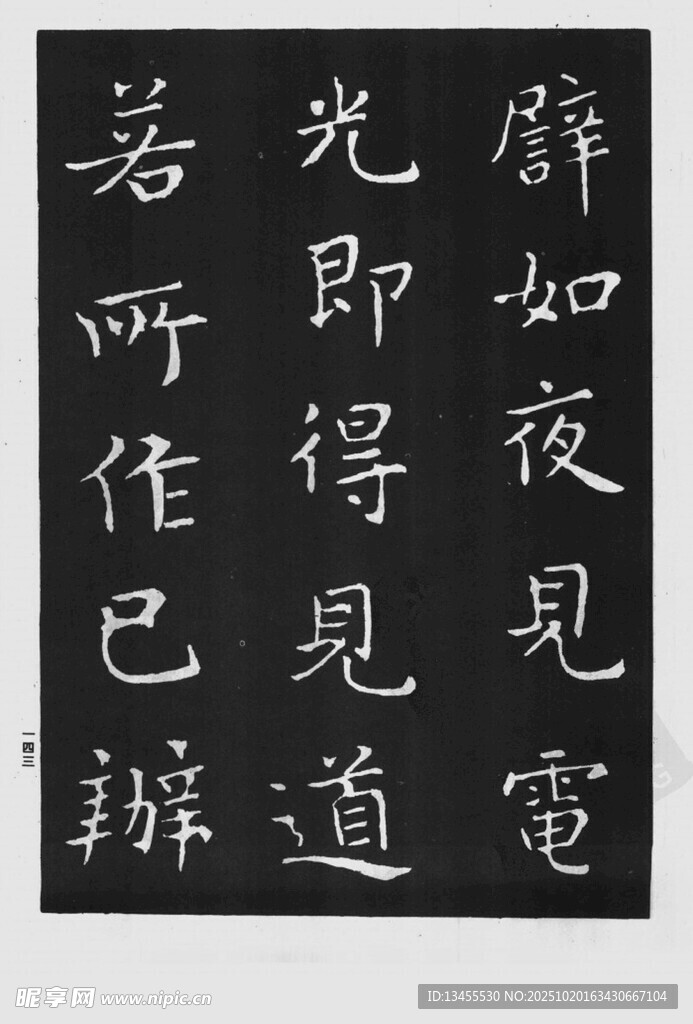 譬如夜見電
光即得見道
若所作已辦
一四三
昵享网 www.nipic.cn
ID:13455530 NO:20251020163430667104